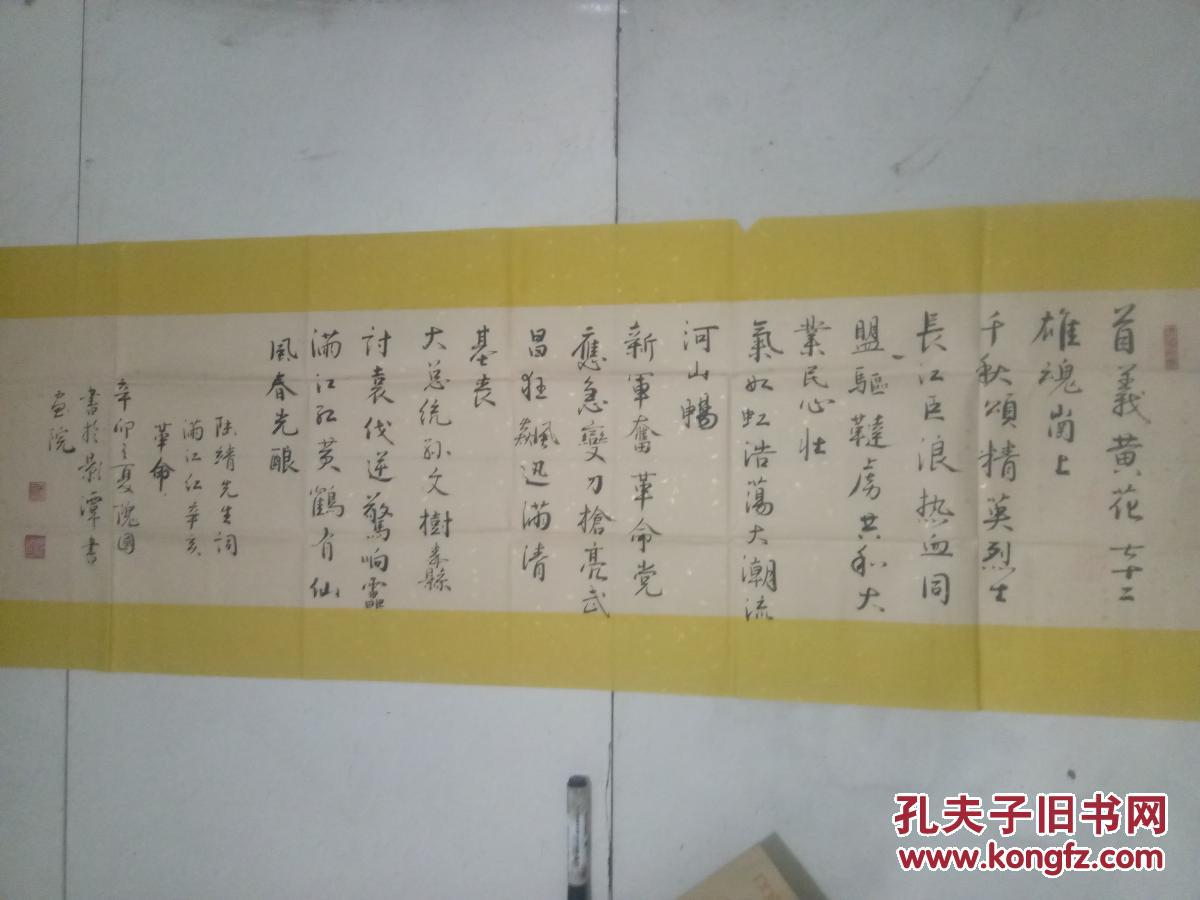 首義黄花七十二
雄魂崗上
千秋頌精英烈士
長江巨浪热血同
盟驅韃虏共和大
業民心壮
氣如虹浩蕩大潮流
河山暢
新軍奮革命党
應急變刀搶亮武
昌狂飊迅满清
基丧
大总统孙文樹
討袁伐逆驚响靈
满江红黄鶴有仙
風春光酿
陆靖先生詞
满江红辛亥
革命
辛卯之夏
書於影潭書
画院
孔夫子旧书网
www.kongfz.com